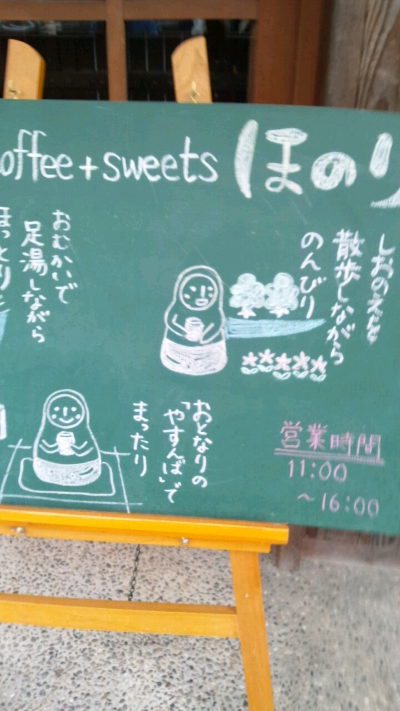 offee + sweets ほのり
しおのえを
散歩しながら
のんびり
おむかいで
足湯しながら
ほっとり
おとなりの
「やすんば」で
まったり
営業時間
11:00
～16:00